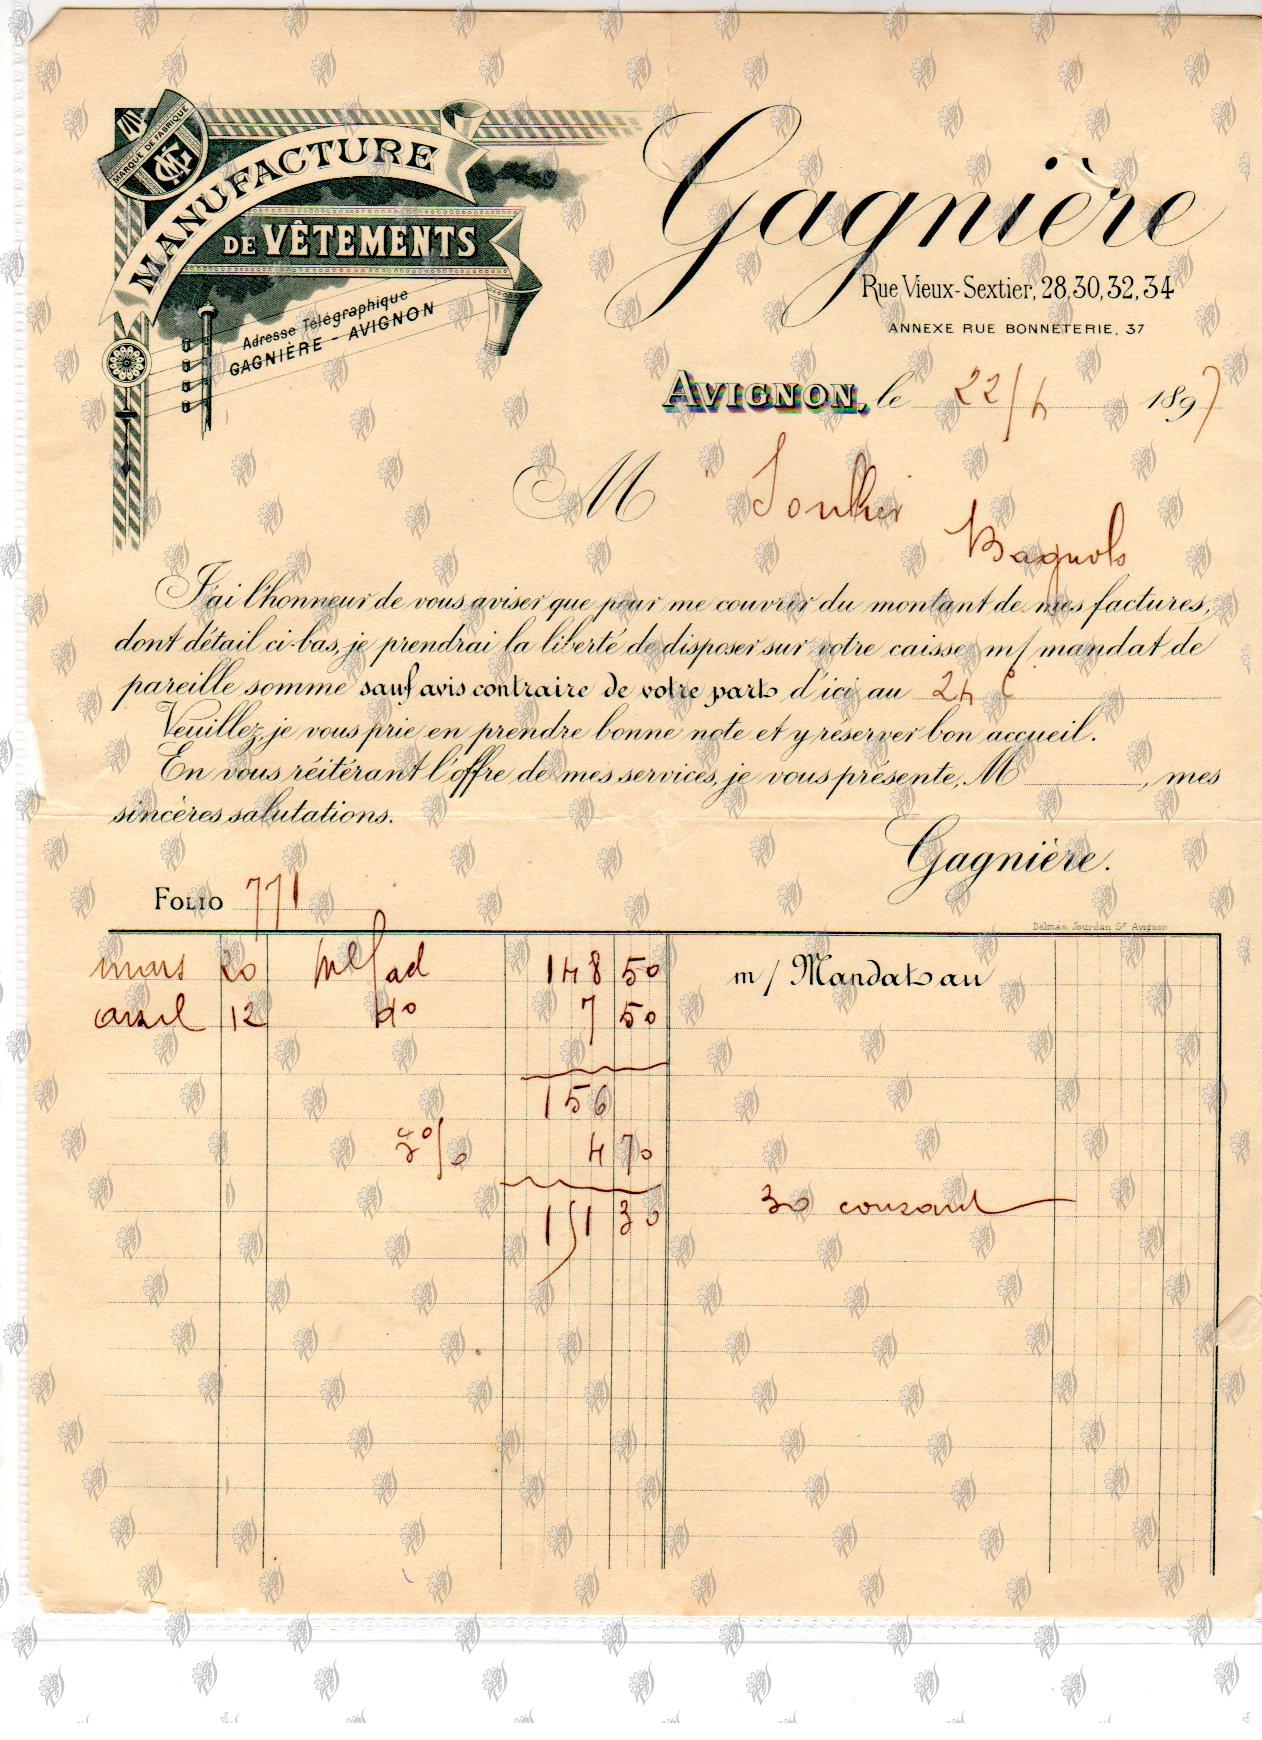 MARQUE DE FABRIQUE
MANUFACTURE
DE VÊTEMENTS
Adresse Télégraphique
GAGNIÈRE - AVIGNON
Gagnière
Rue Vieux-Sextier, 28, 30, 32, 34
ANNEXE RUE BONNETERIE, 37
AVIGNON, le 22/4 1897
M Soulier
Bagnols
J'ai l'honneur de vous aviser que pour me couvrir du montant de mes factures,
dont détail ci-bas, je prendrai la liberté de disposer sur votre caisse m/ mandat de
pareille somme sauf avis contraire de votre part d'ici au 24 ct
Veuillez, je vous prie en prendre bonne note et y réserver bon accueil.
En vous réitérant l'offre de mes services, je vous présente, M , mes
sincères salutations.
Gagnière.
FOLIO 771
Delmas, Jourdan Sr Avignon
mars 20 148 50 m/ Mandat au
avril 12 do 7 50
156
3% 4 70
30 courant
151 30